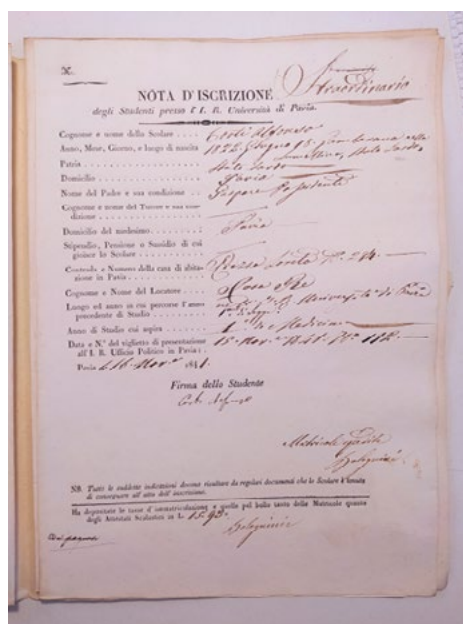 NOTA D'ISCRIZIONE Straordinario
degli Studenti presso l'I. R. Università di Pavia.
Cognome e nome dello Scolare . . . . Alfonso
Anno, Mese, Giorno, e luogo di nascita 1822. Giugno 18.
Patria . . . . . . . . . . . . . . . Stato Sardo
Domicilio . . . . . . . . . . . . . Pavia
Nome del Padre e sua condizione . . Gaspare Possidente
Cognome e nome del Tutore e sua condizione . . . . . . . . . . . . . .
Domicilio del medesimo . . . . . . . . Pavia
Stipendio, Pensione o Sussidio di cui
gioisce lo Scolare . . . . . . . . .
Contrada e Numero della casa di abitazione
in Pavia . . . . . . . . . . Piazza Loreto N.º
Cognome e Nome del Locatore . . . . Casa Re
Luogo ed anno in cui percorse l'anno
precedente di Studio . . . . . . . Università di Pavia
Anno di Studio cui aspira . . . . . . . 1º di Medicina
Data e N.º del viglietto di presentazione
all'I. R. Ufficio Politico in Pavia: 15. Nov.e 1841. Nº 112.
Pavia 16 Nov.e 1841.
Firma dello Studente
Matricola
Bolognini
NB. Tutte le suddette indicazioni devono risultare da regolari documenti che lo Scolare è tenuto
di consegnare all'atto dell'iscrizione.
Ha depositate le tasse d'immatricolazione e quelle pel bollo tanto della Matricola quanto
degli Attestati Scolastici in L. 15.93
Bolognini